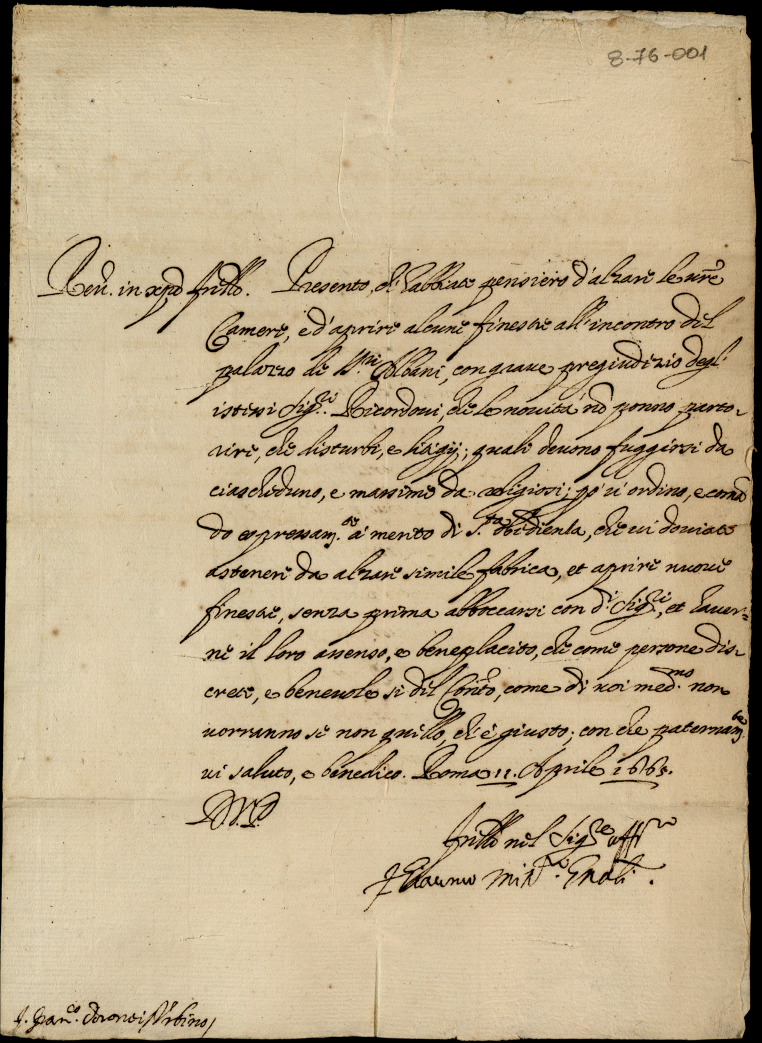 8-76-001
Reu. in xpo frello. Presento, ch'habbiate pensiero d'alzare le vre
Camere, e d'aprire alcune finestre all'incontro del
palazzo de SS.ri Albani, con graue pregiudizio degl'
istessi Sig.ri. Ricordoui, che le nouità nõ ponno parto-
rire, che disturbi, e litigij; quali deuono fuggirsi da
ciascheduno, e massime da religiosi; però ui ordino, e comã
do espressam.te à merito di S.ta obedienza, che ui douiate
astenere da alzare simile fabrica, et aprire nuoue
finestre, senza prima abboccarsi con d.i Sig.ri, et hauer-
ne il loro assenso, e beneplacito, che come persone dis-
crete, e beneuole sì del Conto, come di uoi med.mo non
uorranno se non quello, ch'è giusto; con che paternam.te
ui saluto, e benedico. Roma 11. Aprile 1665.
D.V.P.
frello nel Sig.re aff.mo
min.ro Gñali.
Urbino